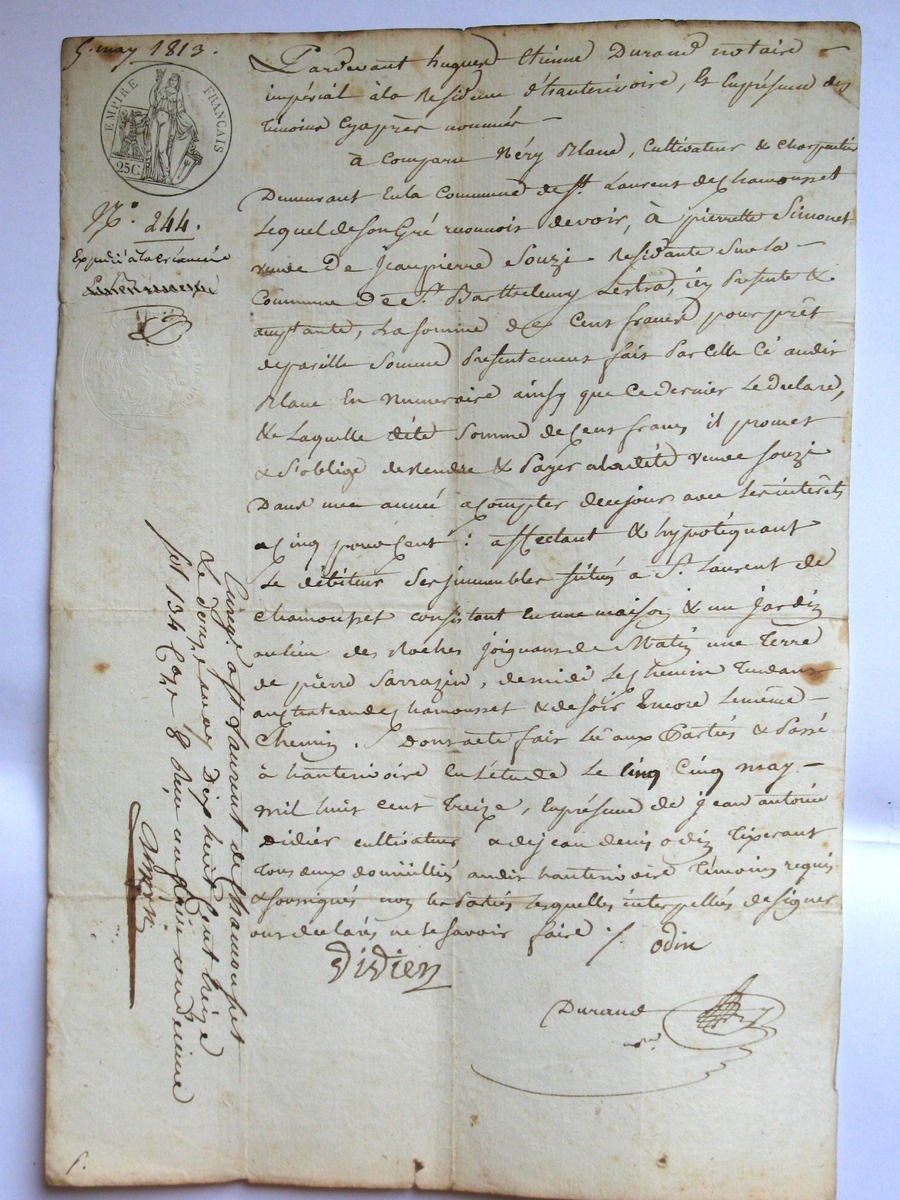 5. may 1813.
EMPIRE FRANÇAIS
25C.
N.° 244.
Expedié a la créancière
Pardevant hugues Etienne Durand notaire
impérial à la Residence d'hauterivoire, Et En présence des
témoins Cyaprès nommés
à Comparu Néry Blanc, Cultivateur & Charpentier
Demeurant En la Commune de St. Laurent de Chamousset
Lequel de son Gré reconnois devoir, à pierrette Simonet
veuve De Jeanpierre Souzi Residante Sur la
Commune De St. Barthelemy Lestra, icy Presente &
acceptante, La somme de Cent francs pour prêt
de pareille Somme Presentement fait Par Celle Cé audit
Blanc En Numeraire ainsy que Ce dernier Le declare,
& Laquelle dété Somme de Cent francs il promet
& s'oblige de Rendre & Payer aladité veuve Souzi
Dans une année a Compter de ce jour avec les interêts
a Cinq pour Cent : affectant & hypotéquant
Le débiteur Ses immeubles situés a St. Laurent de
Chamousset consistant en une maison & un Jardin
au lieu des Roches joignant de Matin une terre
de pierre Sarrazin, de midi Le Chemin tendant
au chateau de Chamousset & de soir Encore Le même
Chemin. Dont acte fait Lu aux Parties & Passé
à hauterivoire En l'étude Le Cinq Cinq may
mil huit cent treize, En présence de jean antoine
Didier cultivateur & de jean denis odin tixerant
tous deux domiciliés audit hauterivoire témoins requis
& soussignés non les Parties lesquelles interpellés de signer
ont declarés ne le savoir faire ./.
odin
Didier
Durand
nore
Enregé a St Laurent de Chamousset
Le douze may Dix huit Cent treize
fol 134 Case 8 Reçu un franc un Decime